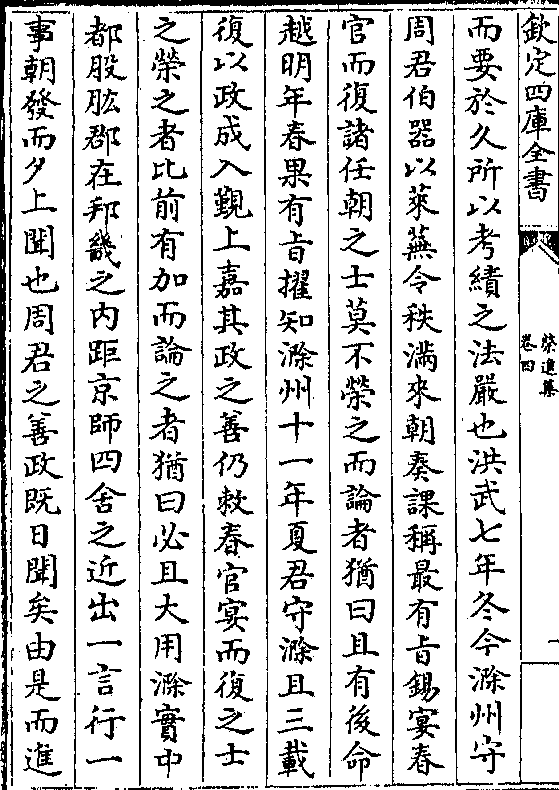 欽定四庫全書
榮進集
卷四
而要於久所以考績之法嚴也洪武七年冬今滁州守
周君伯器以萊蕪令秩滿來朝奏課稱最有旨錫宴春
官而復諸任朝之士莫不榮之而論者猶曰且有後命
越明年春果有旨擢知滁州十一年夏君守滁且三載
復以政成入覲上嘉其政之善仍敕春官宴而復之士
之榮之者比前有加而論之者猶曰必且大用滁實中
都股肱郡在邦畿之内距京師四舍之近出一言行一
事朝發而夕上聞也周君之善政既日聞矣由是而進